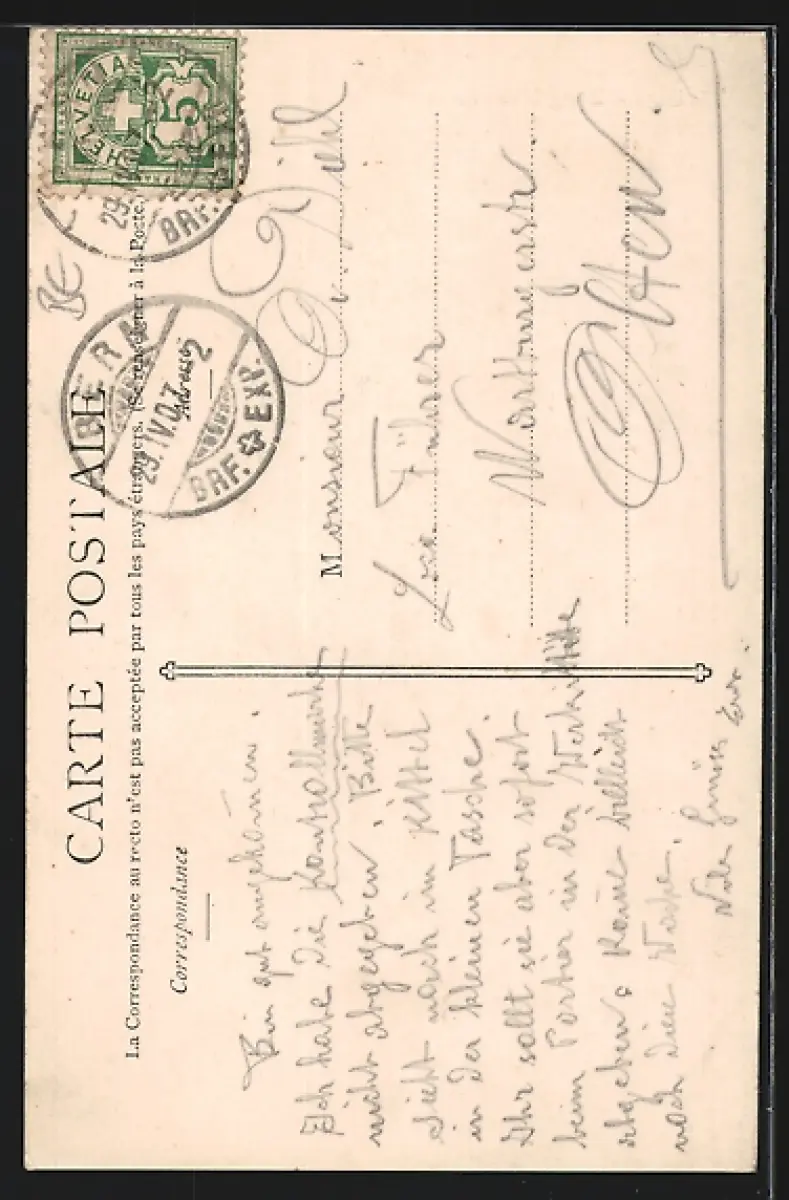 CARTE POSTALE
La Correspondance au recto n'est pas acceptée par tous les pays étrangers. (Se renseigner à la Poste.
Correspondance
Adresse
HELVETIA
5
BERN
29.IV.07. 2
BRF. EXP.
29.
BRF. EXP.
BE
Bin gut angekom̅en.
Ich habe die Kontrollmarke
nicht abgegeben. Bitte
sieht nach im Kittel
in der kleinen Tasche.
Ihr sollt sie aber sofort
beim Portier in der Werkstätte
abgeben. Kom̅e vielleicht
noch diese Woche.
Viele Grüsse
Monsieur O. Diehl
Loc. Führer
Olten.